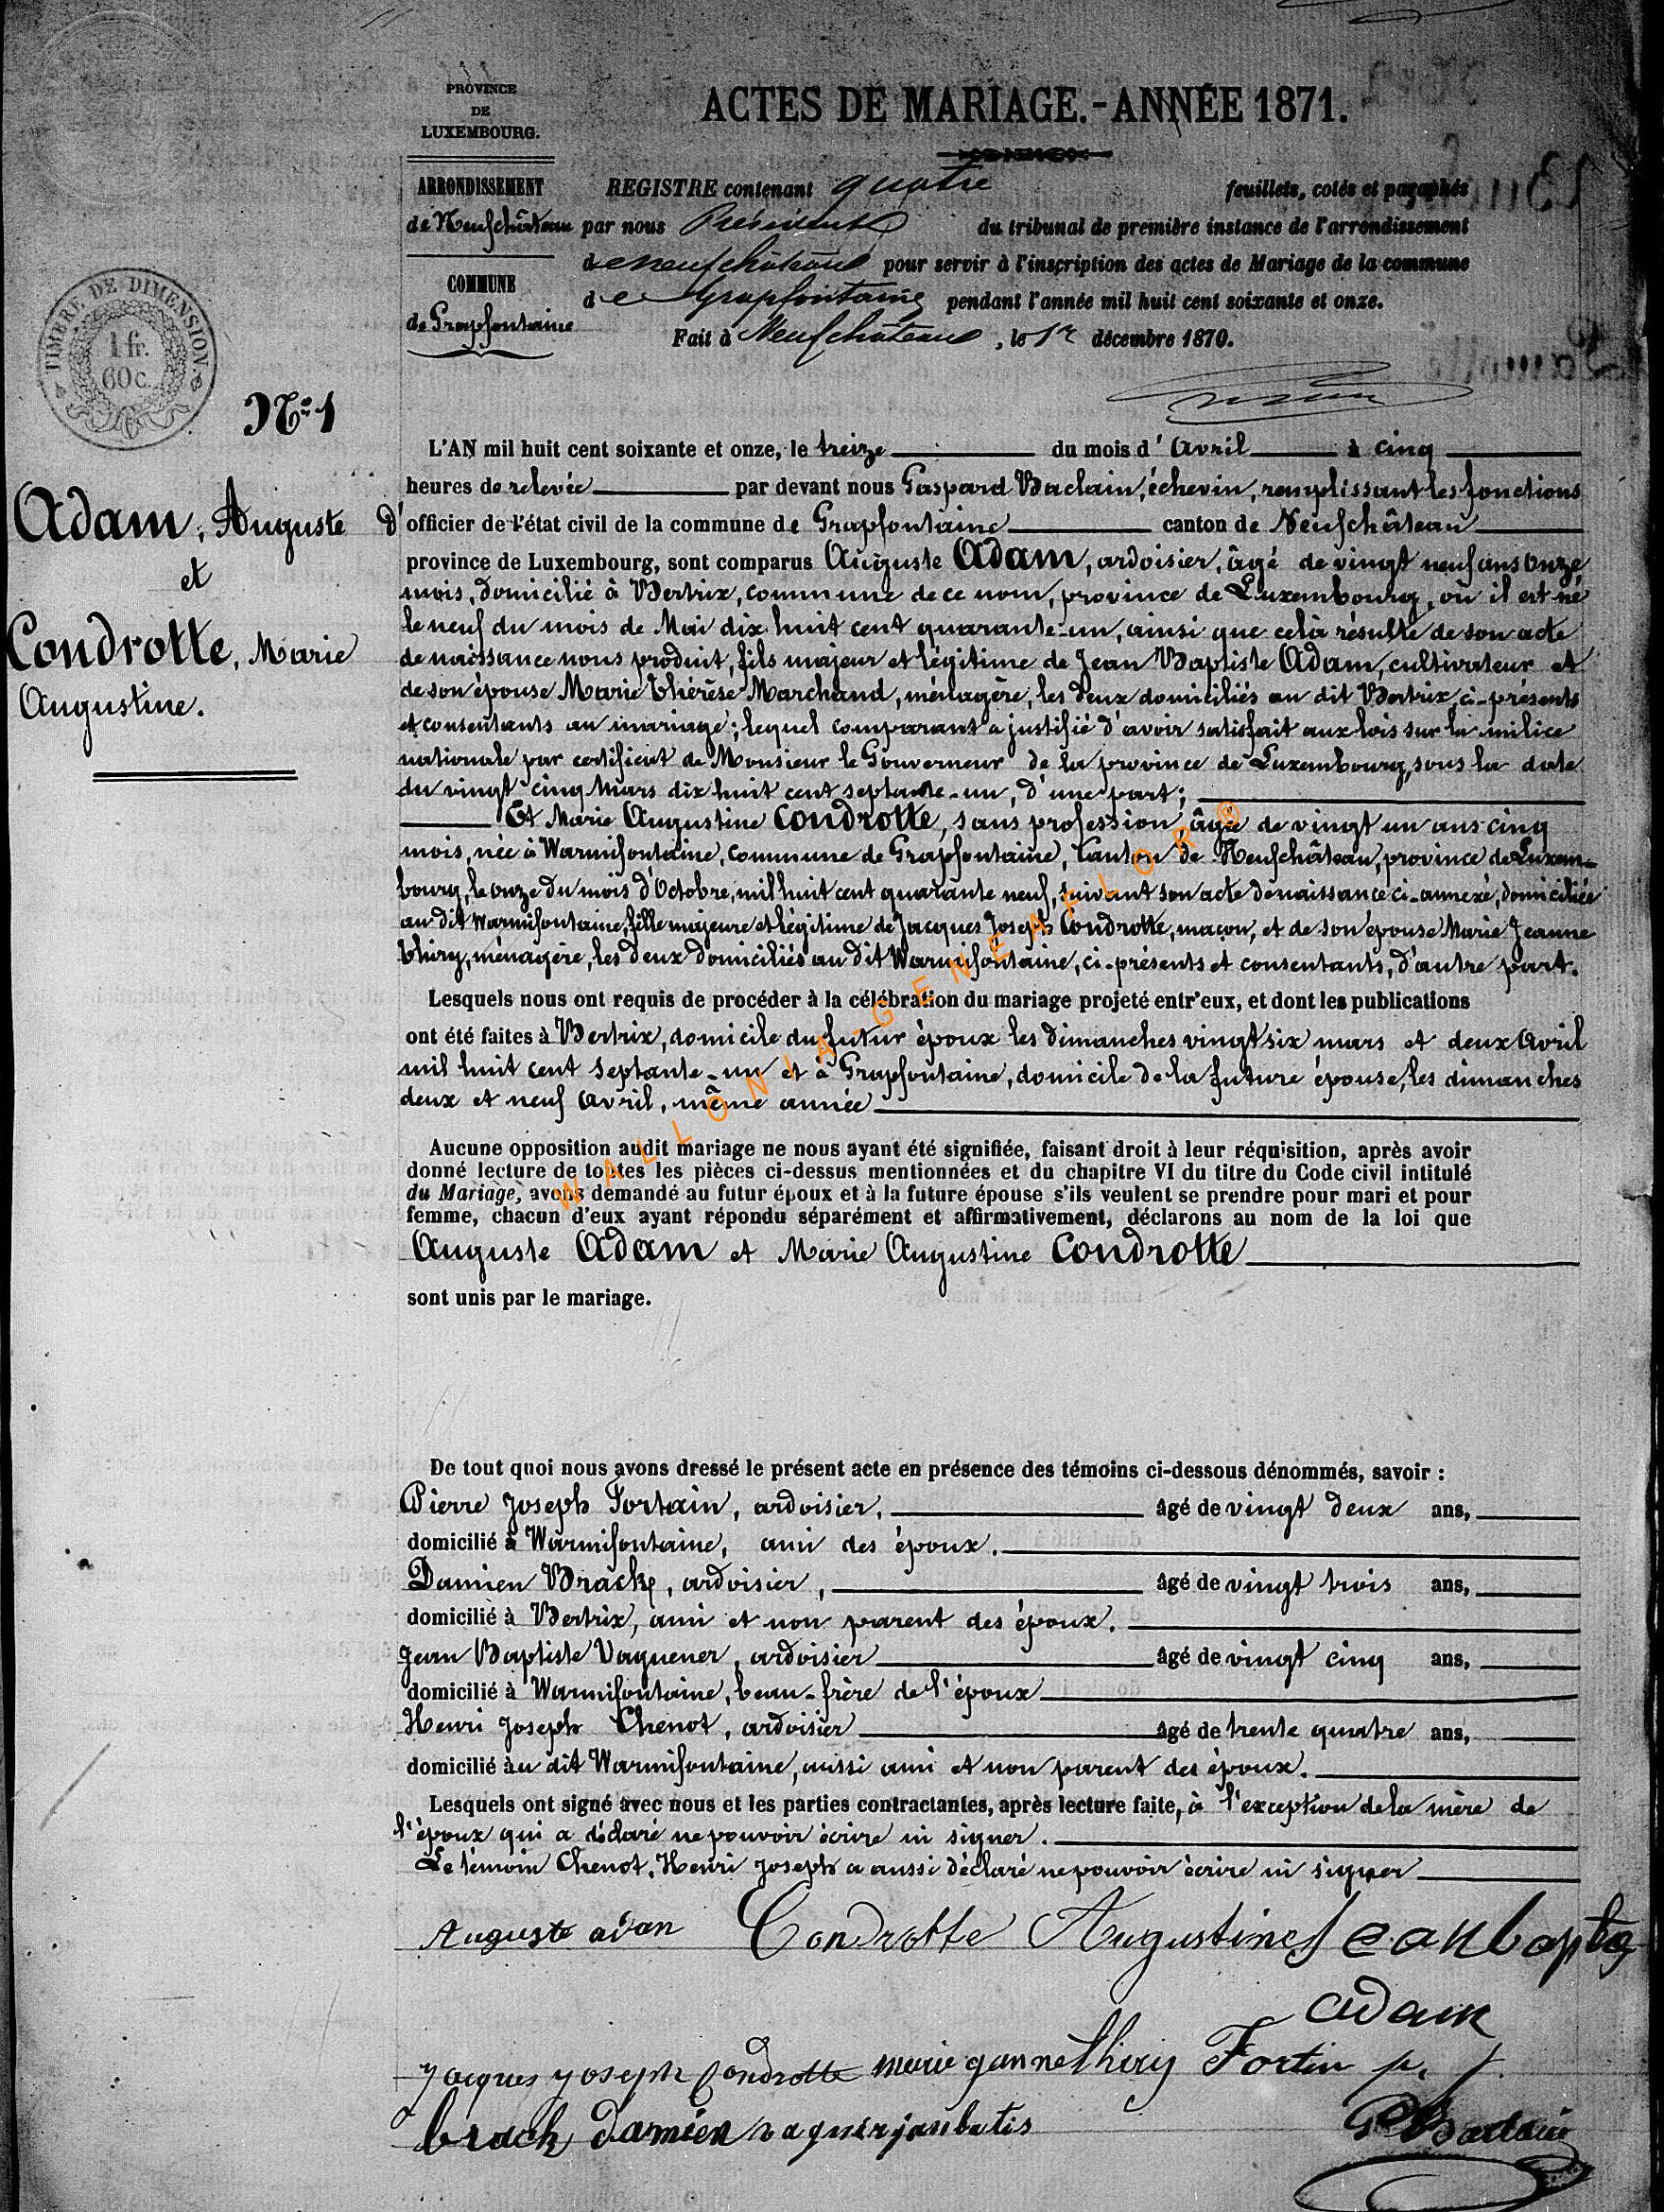 PROVINCE
DE
LUXEMBOURG.
ARRONDISSEMENT
de Neufchâteau
COMMUNE
de Grapfontaine
ACTES DE MARIAGE.-ANNÉE 1871.
REGISTRE contenant quatre feuillets, cotés et paraphés
par nous Président du tribunal de première instance de l'arrondissement
de neufchâteau pour servir à l'inscription des actes de Mariage de la commune
de Grapfontaine pendant l'année mil huit cent soixante et onze.
Fait à Neufchâteau, le 1er décembre 1870.
TIMBRE DE DIMENSION.
1 fr.
60 c.
No 1
Adam, Auguste
et
Condrotte, Marie
Augustine.
L'AN mil huit cent soixante et onze, le treize du mois d'Avril à cinq
heures de relevée par devant nous Gaspard Baclain, échevin, remplissant les fonctions
d'officier de l'état civil de la commune de Grapfontaine canton de Neufchâteau
province de Luxembourg, sont comparus Auguste Adam, ardoisier, âgé de vingt neuf ans onze
mois, domicilié à Bertrix, commune de ce nom, province de Luxembourg, où il est né
le neuf du mois de Mai dix huit cent quarante-un, ainsi que celà résulte de son acte
de naissance nous produit, fils majeur et légitime de Jean Baptiste Adam, cultivateur et
de son épouse Marie Thérèse Marchand, ménagère, les deux domiciliés au dit Bertrix, ci-présents
et consentants au mariage; lequel comparant a justifié d'avoir satisfait aux lois sur la milice
nationale par certificat de Monsieur le Gouverneur de la province de Luxembourg, sous la date
du vingt cinq Mars dix huit cent septante-un, d'une part;
Et Marie Augustine Condrotte, sans profession, âgée de vingt un ans cinq
mois, née à Warmifontaine, commune de Grapfontaine, Canton de Neufchâteau, province de Luxem-
bourg, le onze du mois d'Octobre, mil huit cent quarante neuf, suivant son acte de naissance ci-annexé, domiciliée
au dit Warmifontaine, fille majeure et légitime de Jacques Joseph Condrotte, maçon, et de son épouse Marie Jeanne
Thiry, ménagère, les deux domiciliés au dit Warmifontaine, ci-présents et consentants, d'autre part.
Lesquels nous ont requis de procéder à la célébration du mariage projeté entr'eux, et dont les publications
ont été faites à Bertrix, domicile du futur époux les dimanches vingt six mars et deux Avril
mil huit cent septante-un et à Grapfontaine, domicile de la future épouse, les dimanches
deux et neuf Avril, même année
Aucune opposition audit mariage ne nous ayant été signifiée, faisant droit à leur réquisition, après avoir
donné lecture de toutes les pièces ci-dessus mentionnées et du chapitre VI du titre du Code civil intitulé
du Mariage, avons demandé au futur époux et à la future épouse s'ils veulent se prendre pour mari et pour
femme, chacun d'eux ayant répondu séparément et affirmativement, déclarons au nom de la loi que
Auguste Adam et Marie Augustine Condrotte
sont unis par le mariage.
WALLONIA-GENEAFLOR®
De tout quoi nous avons dressé le présent acte en présence des témoins ci-dessous dénommés, savoir :
Pierre Joseph Fortain, ardoisier, âgé de vingt deux ans,
domicilié à Warmifontaine, ami des époux.
Damien Brack, ardoisier, âgé de vingt trois ans,
domicilié à Bertrix, ami et non parent des époux.
Jean Baptiste Vaguener, ardoisier âgé de vingt cinq ans,
domicilié à Warmifontaine, beau-frère de l'époux
Henri Joseph Chenot, ardoisier âgé de trente quatre ans,
domicilié au dit Warmifontaine, aussi ami et non parent des époux.
Lesquels ont signé avec nous et les parties contractantes, après lecture faite, à l'exception de la mère de
l'époux qui a déclaré ne pouvoir écrire ni signer.
Le témoin Chenot, Henri Joseph a aussi déclaré ne pouvoir écrire ni signer
Auguste adan Condrotte Augustine Jeanbapte
adam
Jacques Joseph Condrotte marie janne Thiry Fortin p. j.
brack damien vaguer janbatis G Baclain